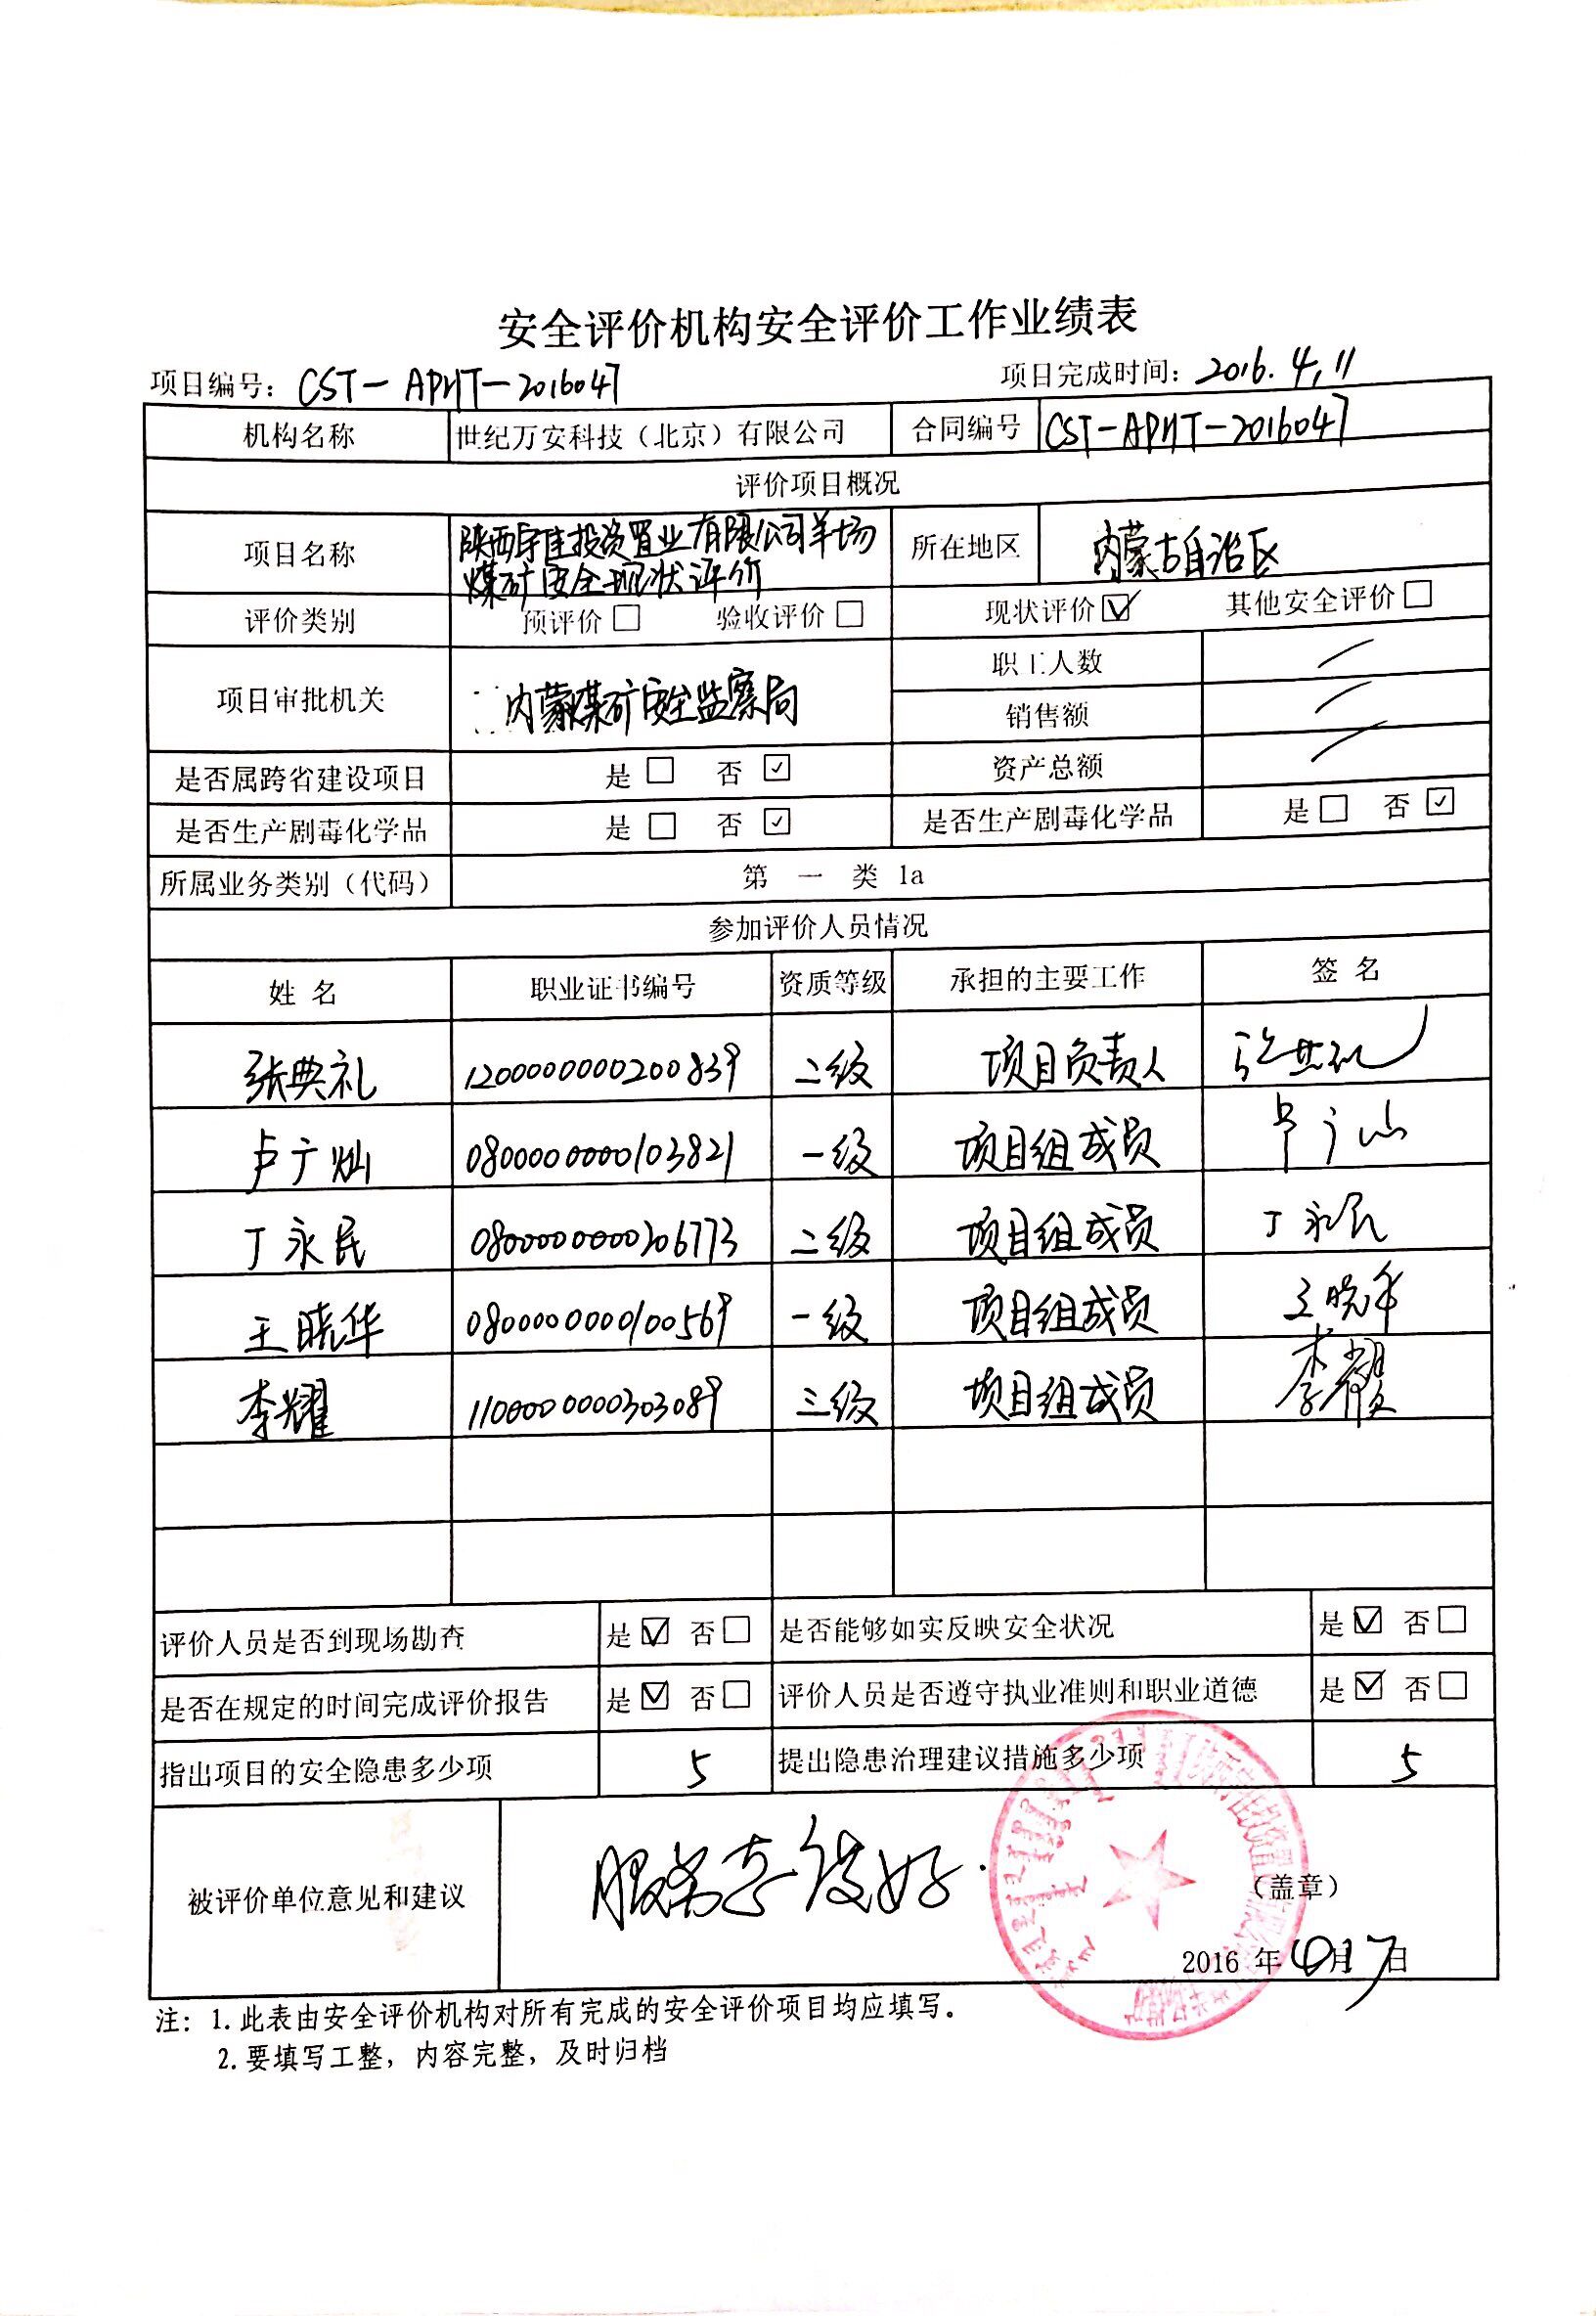 安全评价机构安全评价工作业绩表
项目编号：CST-APHT-2016047 项目完成时间：2016.4.11
机构名称 世纪万安科技（北京）有限公司 合同编号 CST-APHT-2016047
评价项目概况
项目名称 陕西宇佳投资置业有限公司羊场 所在地区 内蒙古自治区
煤矿安全现状评价
评价类别 预评价□ 验收评价□ 现状评价☑ 其他安全评价□
项目审批机关 内蒙煤矿安全监察局 职工人数 /
销售额 /
是否属跨省建设项目 是□ 否☑ 资产总额 /
是否生产剧毒化学品 是□ 否☑ 是否生产剧毒化学品 是□ 否☑
所属业务类别（代码） 第 一 类 1a
参加评价人员情况
姓 名 职业证书编号 资质等级 承担的主要工作 签 名
张典礼 1200000000200839 二级 项目负责人 张典礼
卢广灿 0800000000103821 一级 项目组成员 卢广灿
丁永民 0800000000206773 二级 项目组成员 丁永民
王晓华 0800000000100569 一级 项目组成员 王晓华
李耀 1100000000303089 三级 项目组成员 李耀
评价人员是否到现场勘查 是☑ 否□ 是否能够如实反映安全状况 是☑ 否□
是否在规定的时间完成评价报告 是☑ 否□ 评价人员是否遵守执业准则和职业道德 是☑ 否□
指出项目的安全隐患多少项 5 提出隐患治理建议措施多少项 5
被评价单位意见和建议 服务态度好. （盖章）
2016 年 月17日
注：1.此表由安全评价机构对所有完成的安全评价项目均应填写。
2.要填写工整，内容完整，及时归档